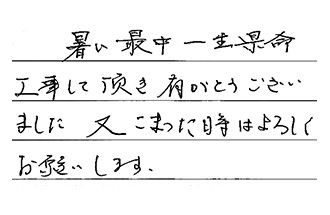 暑い最中一生懸命
工事して頂き有がとうござい
ました 又こまった時はよろしく
お願いします.